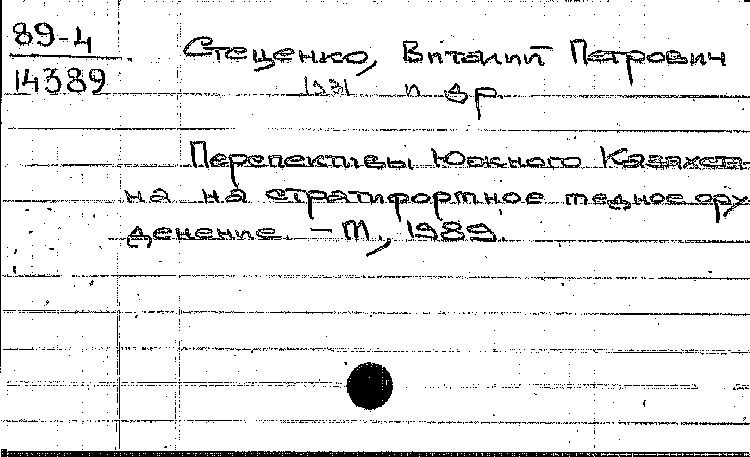 89-4
14389
Стеценко, Виталий Петрович
1931 и др.
Перспективы Южного Казахста-
на на стратифортное медное ору
денение. – М., 1989.